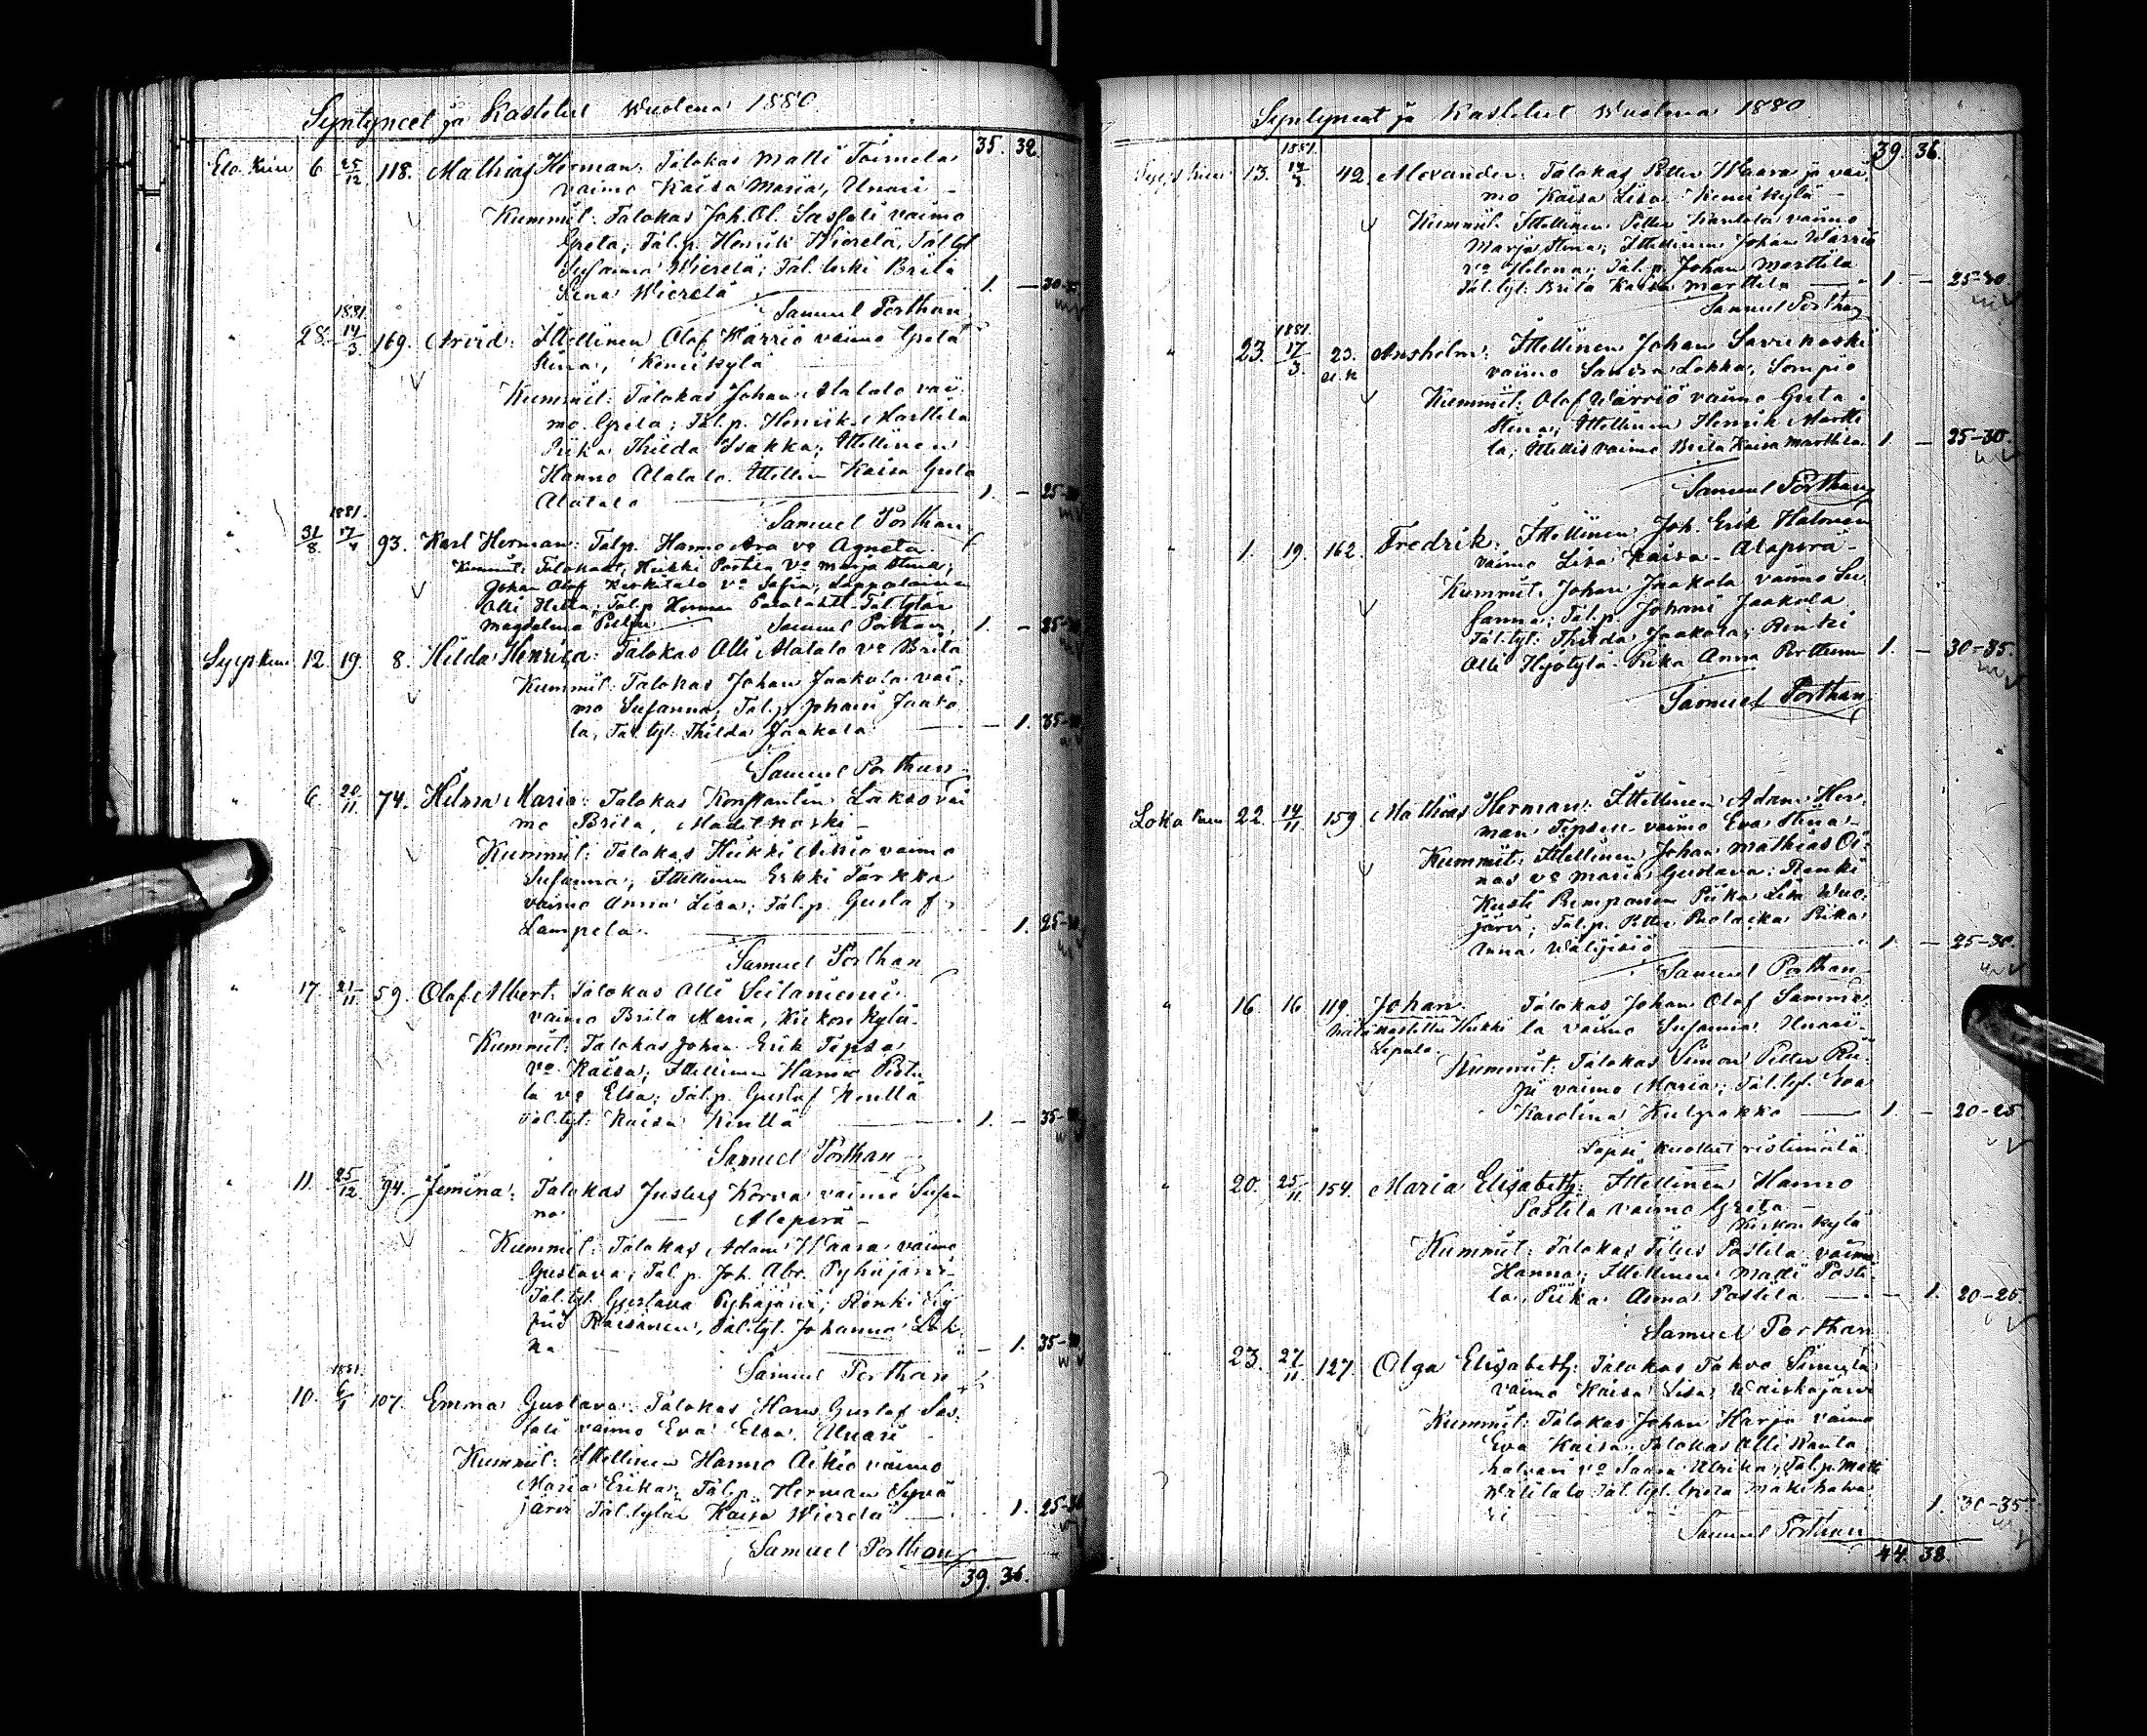 Syntyneet ja Kastetut Wuolena 1880
35. 32.
Elo Kuu 6 25/12 118. Mathias Herman: Talokas Matti Toimela
vaimo Kaisa Maria, Unari –
Kummit: Talokas Joh. Ol. Sassali vaimo
Greta; Tal.p. Henrik Wierelä, Tal.tyt
Susanna Wierelä; Tal. leski Brita
Stina Wierelä 1. – 30-35
Samuel Porthan
1881.
" 28. 14/3 169. Arvid: Ittellinen Olof Wärriö vaimo Greta
Stina, Kemikylä
Kummit: Talokas Johan Alatalo vai-
mo Greta; Tal.p. Henrik Marttila
Piika Thilda Isakka; Ittellinen
Hanno Alatalo. Ittellin Kaisa Greta
Alatalo 1. – 25-30
Samuel Porthan
1881.
" 31/8 93. Karl Herman: Talp. Hanno Ara vo Agneta.
Kummit: Talokkat, Heikki Postila Vo Marja Stina;
Johan Olof Kerkitalo vo Sofia; Lappalainen
Olli Hetta; Tal.p Herman Tal.tytär
Magdalena Samuel Porthan 1. –
Syys kuu 12. 19. 8. Hilda Henrica: Talokas Olli Alatalo vo Brita
Kummit: Talokas Johan Jaakola vai-
mo Susanna; Tal.p Johani Jaako
la, Tal.tyt. Thilda Jaakola – 1. 35-40
Samuel Porthan
" 6. 20/11. 74. Hilma Maria: Talokas Konstantin Lakso vai
mo Brita, Madetkoski –
Kummit: Talokas Heikki Aikio vaimo
Susanna; Ittellinen Erkki Tarkka
vaimo Anna Lisa; Tal.p. Gustaf
Lampela. – 1. 25-30
Samuel Porthan
" 17. 21/11. 59. Olof Albert: Talokas Olli Seitaniemi
vaimo Brita Maria, Kirkonkylä
Kummit: Talokas Johan Erik Tepsa
vo Kaisa; Ittellinen Hanno Posti
la vo Elsa; Tal.p. Gustaf Kenttä
Tal.tyt. Kaisa Kenttä 1. – 35-40
Samuel Porthan
" 11. 25/12 94. Jemina: Talokas Justus Korva vaimo Susan
na Alaperä –
Kummit: Talokas Adam Waara vaimo
Gustava; Tal.p. Joh. Abr. Pyhäjärvi
Tal.tyt. Gustava Pyhäjärvi; Renki Sig
frid Räisänen, Tal.tyt. Johanna Lok-
ka – 1. 35-40
Samuel Porthan
1881.
" 10. 6/1 107. Emma Gustava: Talokas Hans Gustaf Sas-
sali vaimo Eva Elsa, Unari
Kummit: Ittellinen Hanno Aikio vaimo
Maria Erika; Tal.p. Herman Syvä
järvi Tal.tytär Kaisa Wierelä 1. 25-30
Samuel Porthan
39. 36.
Syntyneet ja Kastetut Wuolena 1880
39. 36.
1881.
Syys kuu 13. 14/3 42. Alexander: Talokas Petter Waara ja vai-
mo Kaisa Lisa Kemikylä –
Kummit: Ittellinen Petter Kantola vaimo
Marja Stina; Ittellinen Johan Wärriö
vo Helena; Tal.p. Johan Marttila
Tal.tyt. Brita Kaisa Marttila 1. – 25-30.
Samuel Porthan
1881.
" 23. 17/3. 23. Anshelm: Ittellinen Johan Savukoski
vaimo Sandra Lokka, Sompio
Kummit: Olof Wärriö vaimo Greta
Stina; Ittellinen Henrik Martti
la; Ittellis vaimo Brita Kaisa Marttila 1. – 25-30.
Samuel Porthan
" 1. 19. 162. Fredrik: Ittellinen Joh. Erik Halonen
vaimo Lisa Kaisa – Alaperä –
Kummit: Johan Jaakola vaimo Su-
sanna; Tal.p. Johani Jaakola
Tal.tyt. Thilda Jaakola; Renki
Olli Hyötylä Piika Anna Porttinen 1. – 30-35.
Samuel Porthan
Loka kuu 22. 14/11 159. Mathias Herman: Ittellinen Adam Her-
man Tepsen vaimo Eva Stina –
Kummit: Ittellinen Johan Mathias Oi-
nas vo Maria Gustava; Renki
Kusti Rimpinen Piika Lisa Wuo-
järvi; Tal.p. Petter Piika
Anna Wälijeisiö 1. – 25-30.
Samuel Porthan
" 16. 16 119. Johan. Talokas Johan Olof Samme-
Hätäkastettu Heikki la vaimo Susanna Unari –
Sepala.
Kummit: Talokas Simon Petter Rii-
pi vaimo Maria; Tal.tyt. Eva
Karolina Kulpakko 1. – 20-25
Lapsi kuollut ristimätä
" 20. 25/11 154. Maria Elisabeth: Ittellinen Hanno
Postila vaimo Greta –
Kirkonkylä
Kummit: Talokas Titus Postila vaimo
Hanna; Ittellinen Matti Posti-
la, Piika Anna Postila – 1. 20-25.
Samuel Porthan
" 23. 27/11 127. Olga Elisabeth: Talokas Sakro Simula
vaimo Kaisa Lisa Waiskojärvi
Kummit: Talokas Johan Harju vaimo
Eva Kaisa; Talokas Olli Ranta
halvari vo Saara Ulrika; Tal.p. Matti
Wälitalo Tal.tyt. Greta Mäkihalva
ri 1. 30-35.
Samuel Porthan
44. 38.